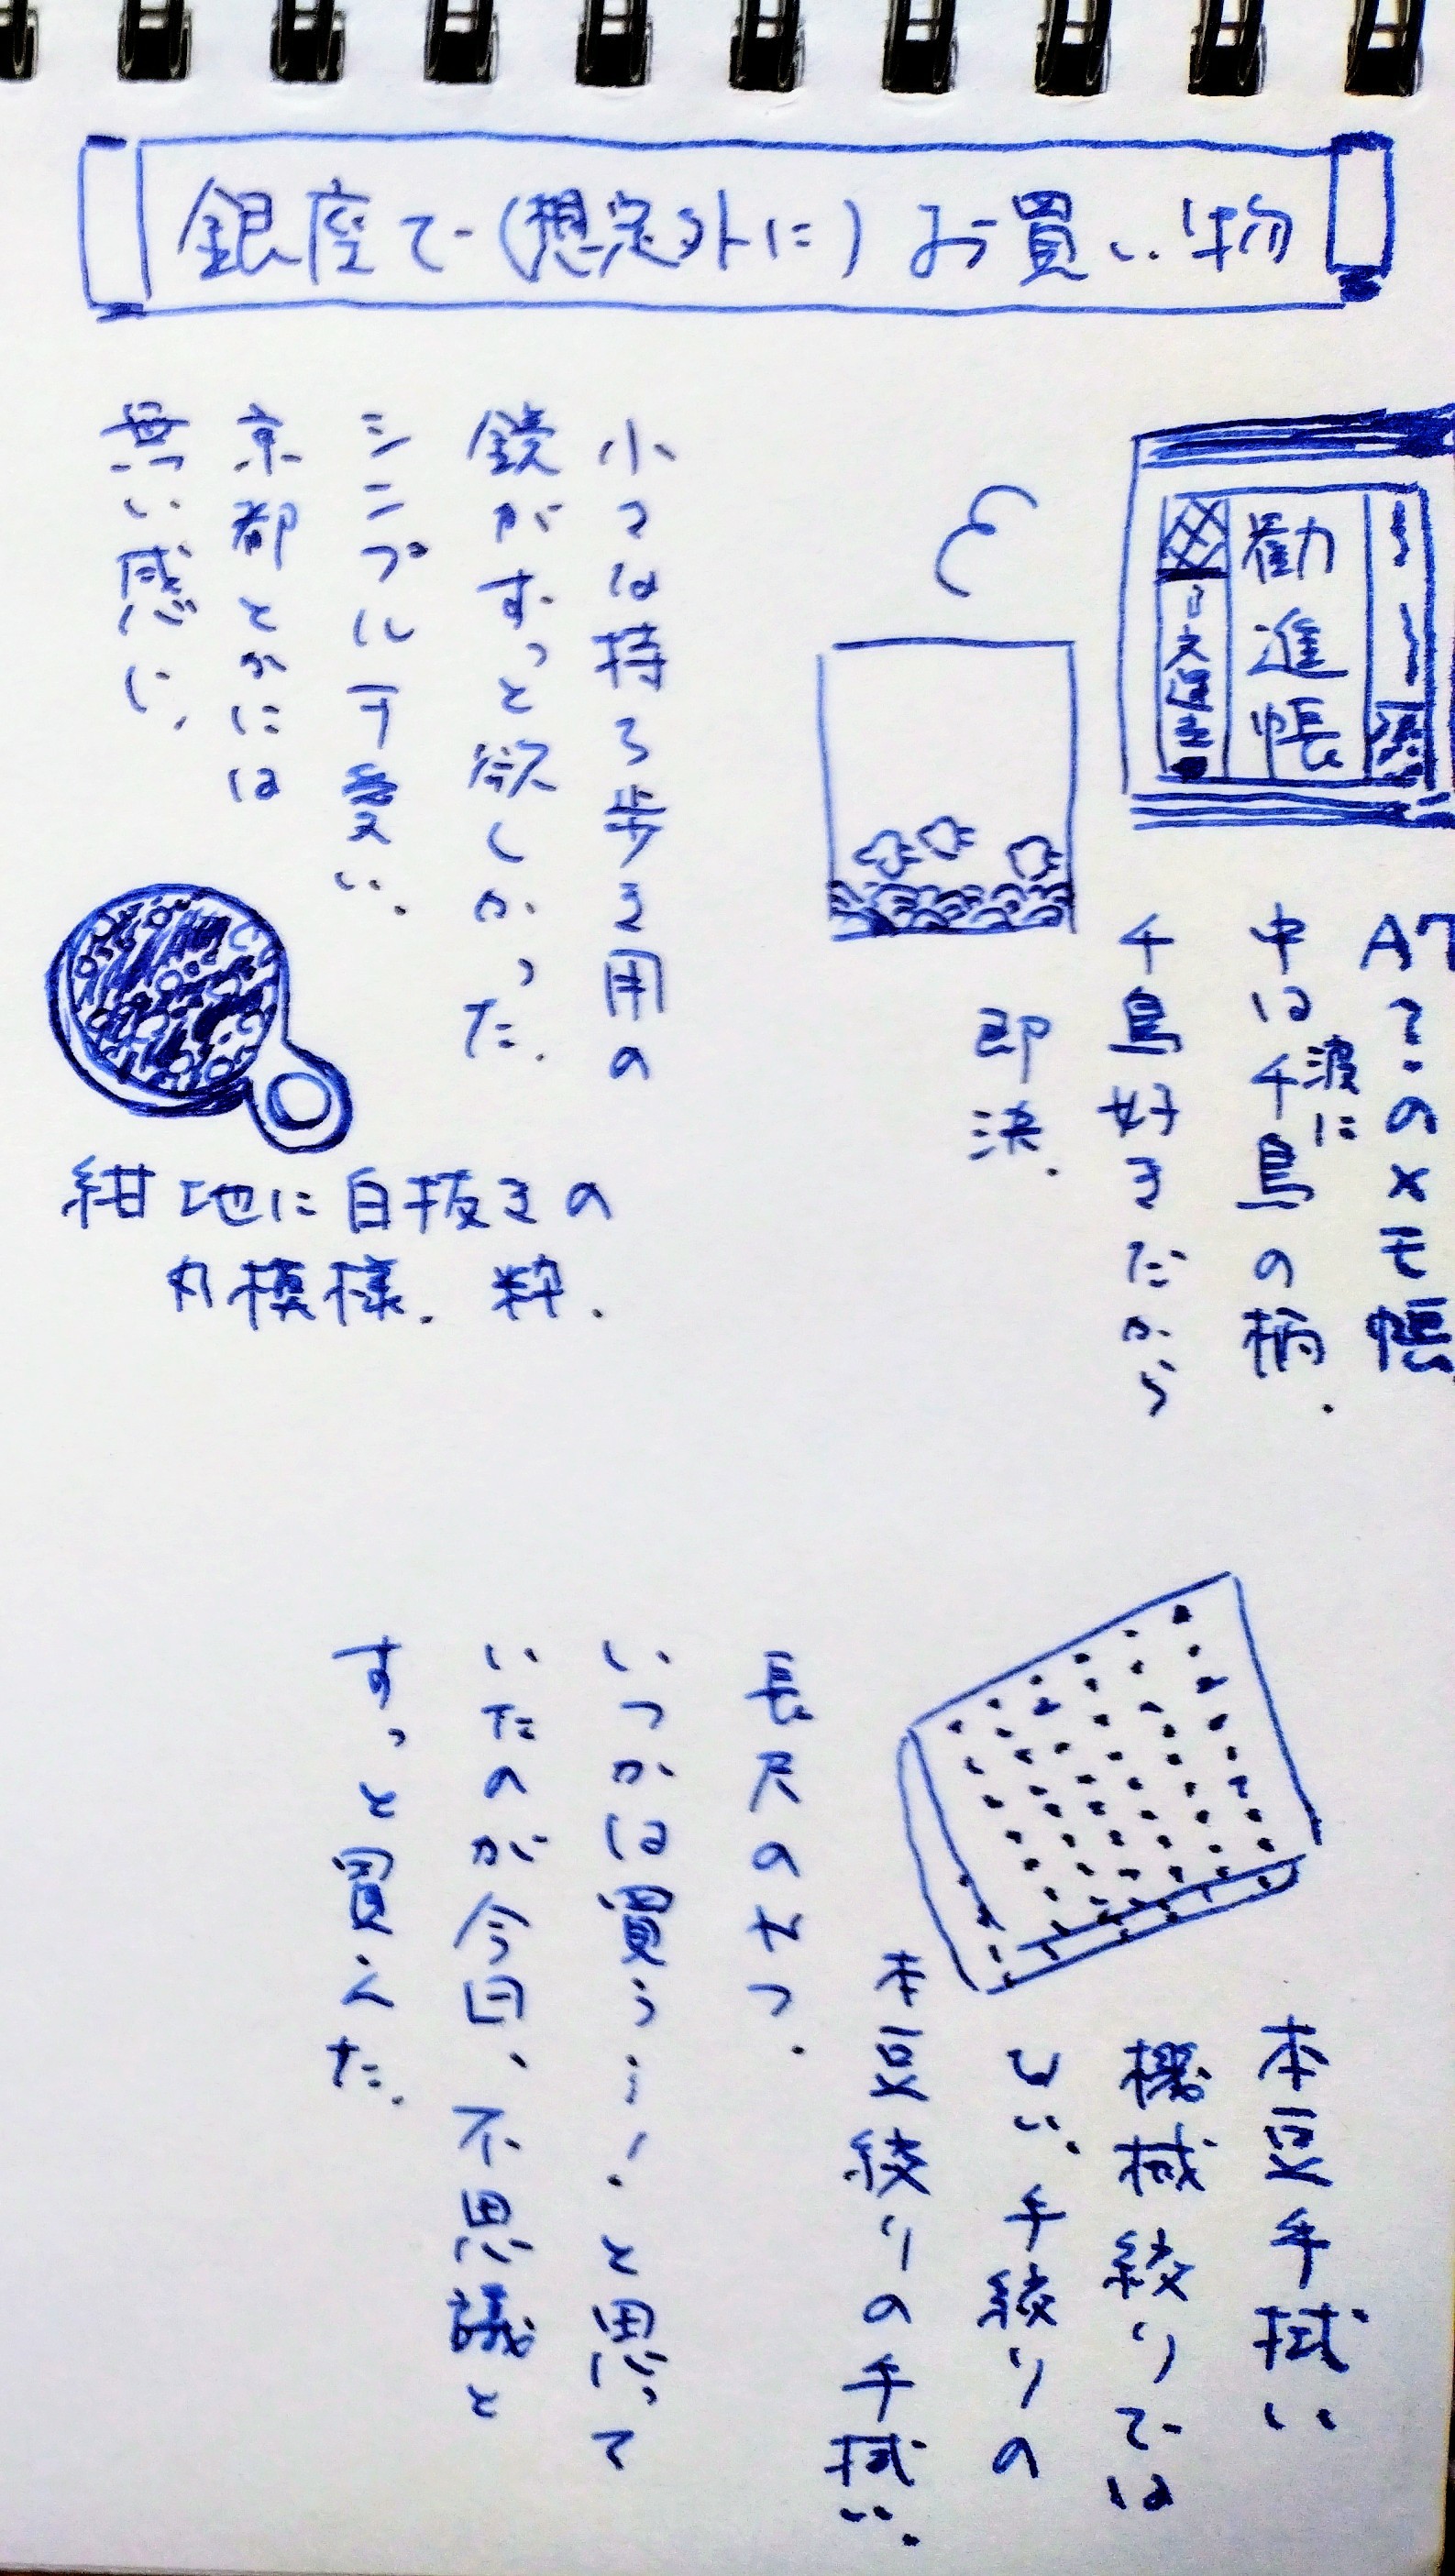 銀座で(想定外に)お買い物
勧進帳
A7?のメモ帳
中は波に千鳥の柄.
千鳥好きだから
即決.
小さな持ち歩き用の
鏡がずっと欲しかった.
シンプルで可愛い.
京都とかには
無い感じ.
紺地に白抜きの
丸模様. 粋.
本豆手拭い
機械絞りでは
ない、手絞りの
本豆絞りの手拭い.
長尺のやつ.
いつかは買う…!と思って
いたのが今日、不思議と
すっと買えた.